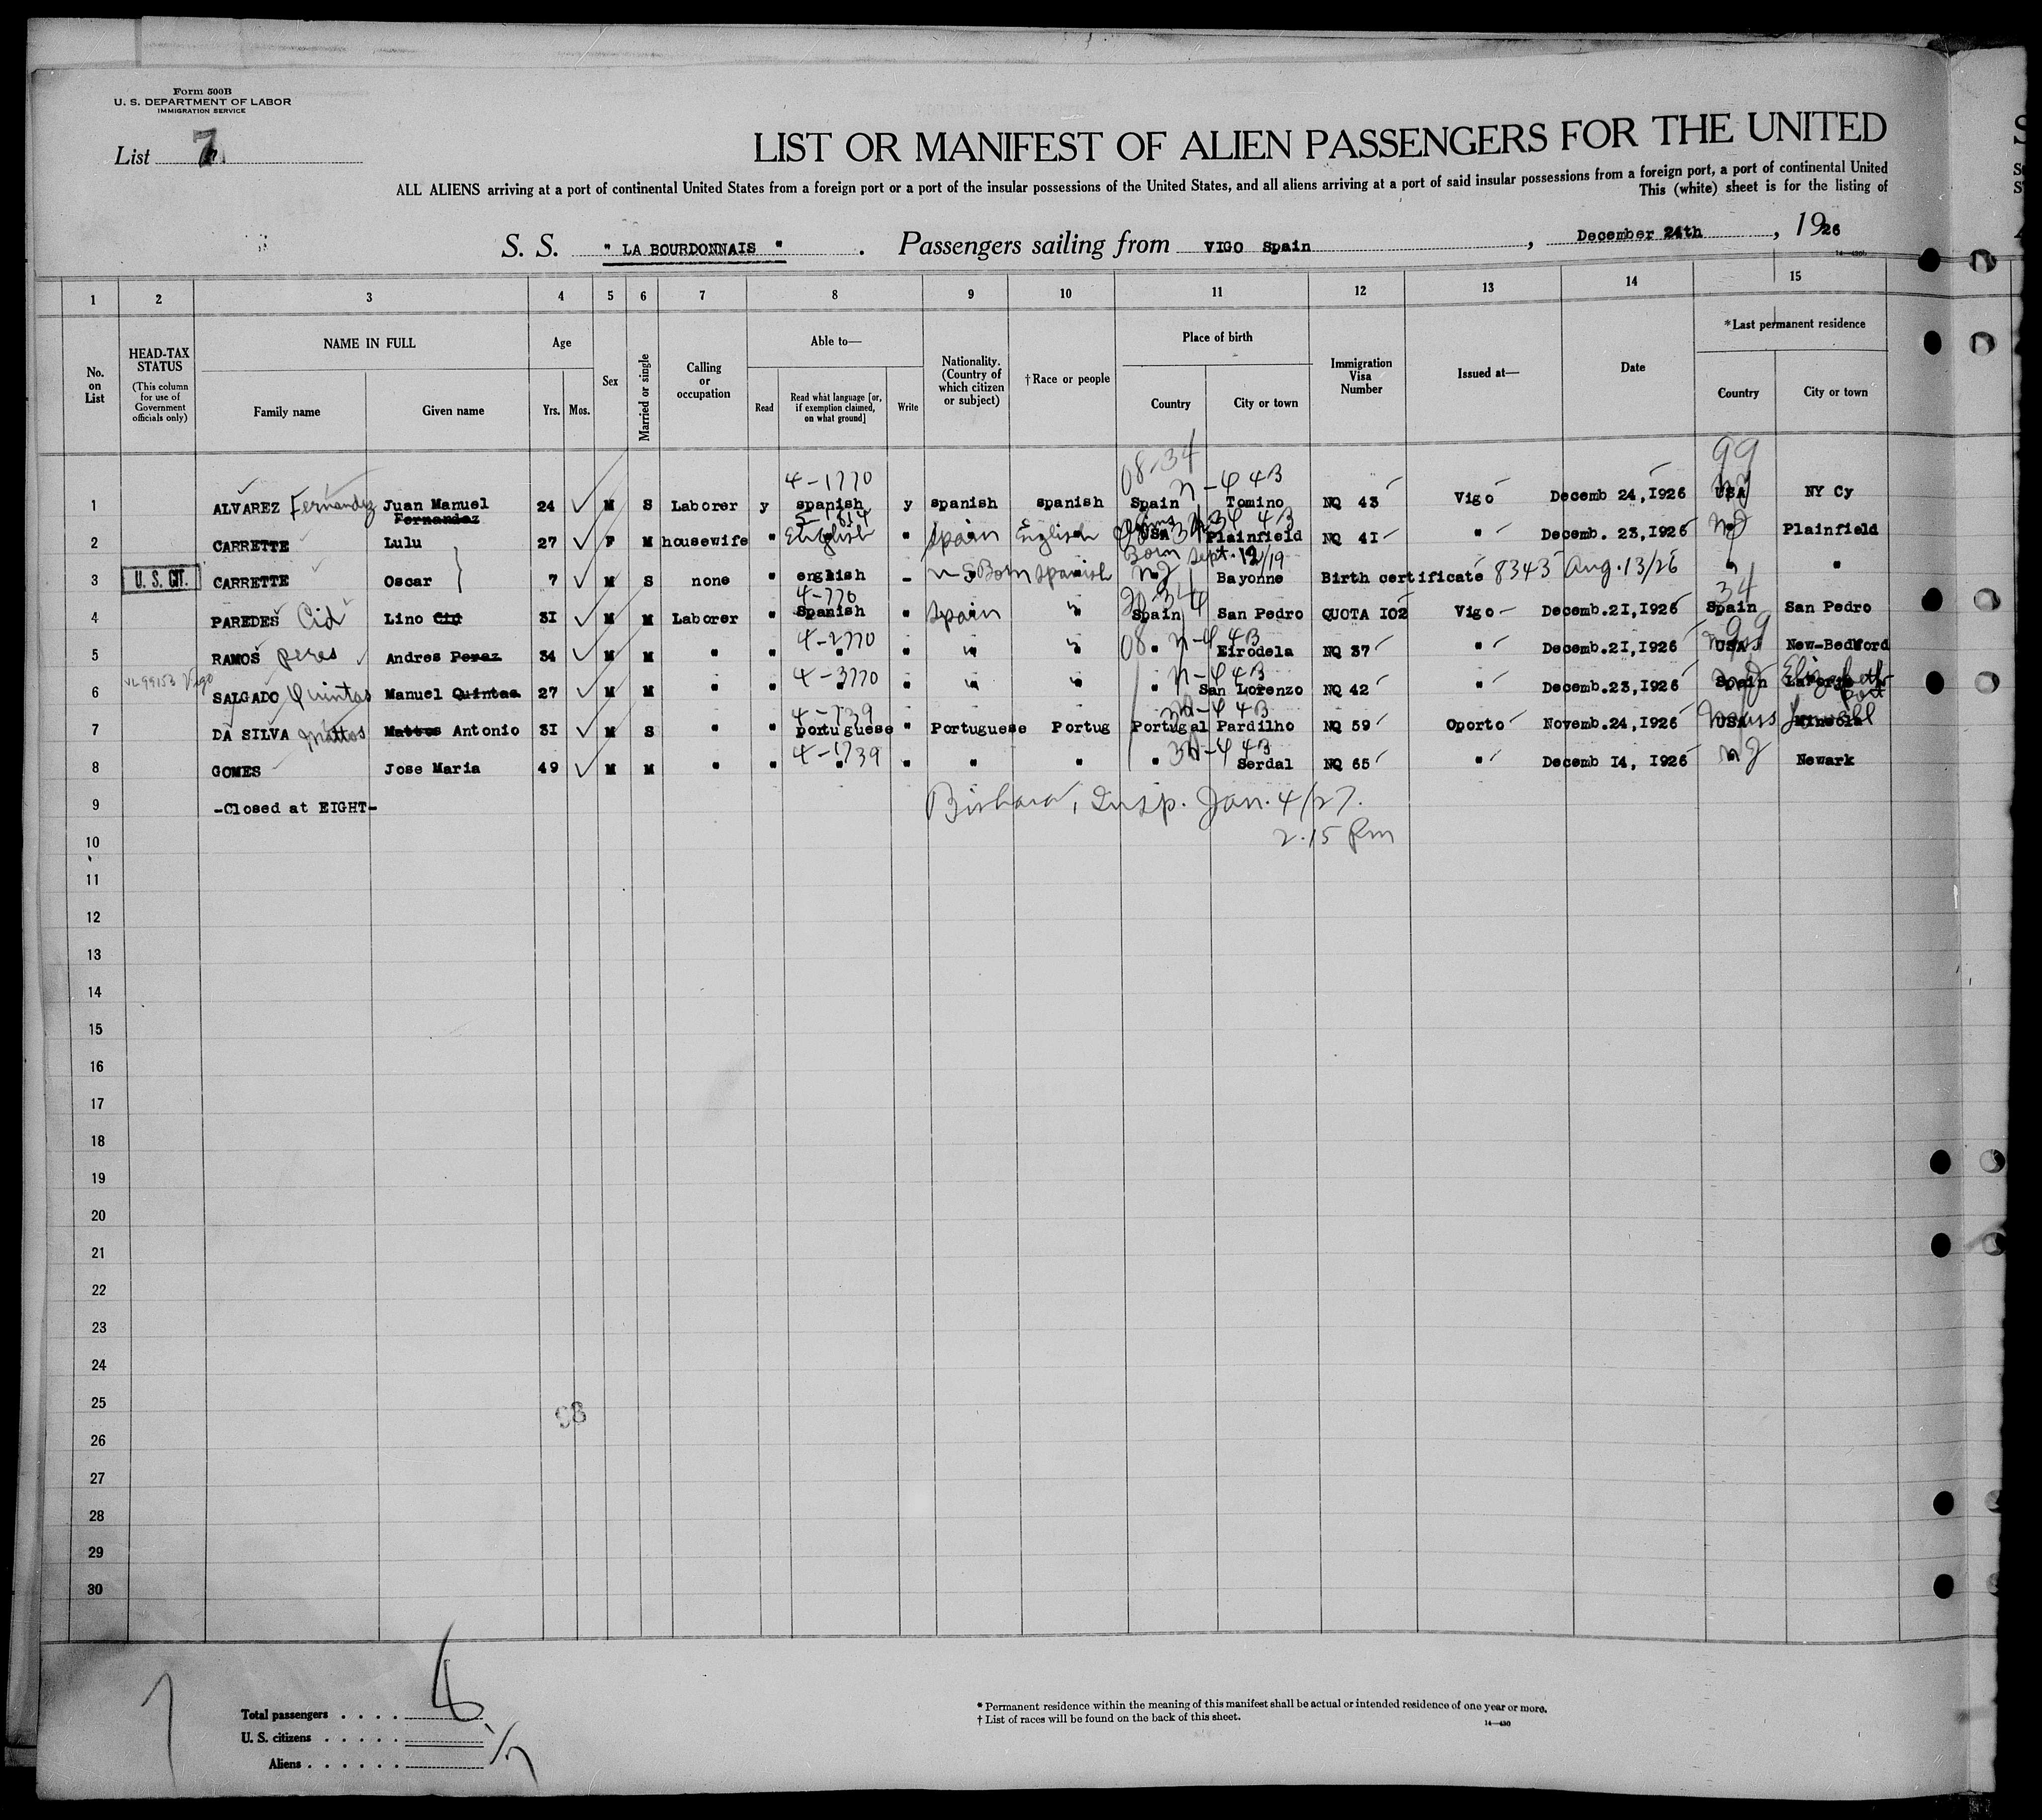 Form 500B
U. S. DEPARTMENT OF LABOR
IMMIGRATION SERVICE
List 7
LIST OR MANIFEST OF ALIEN PASSENGERS FOR THE UNITED
ALL ALIENS arriving at a port of continental United States from a foreign port or a port of the insular possessions of the United States, and all aliens arriving at a port of said insular possessions from a foreign port, a port of continental United
This (white) sheet is for the listing of
S. S. " LA BOURDONNAIS " . Passengers sailing from VIGO Spain , December 24th , 1926
1 2 3 4 5 6 7 8 9 10 11 12 13 14 15
No. on List
HEAD-TAX STATUS (This column for use of Government officials only)
NAME IN FULL Family name Given name
Age Yrs. Mos.
Sex
Married or single
Calling or occupation
Able to— Read Read what language [or, if exemption claimed, on what ground] Write
Nationality. (Country of which citizen or subject)
†Race or people
Place of birth Country City or town
Immigration Visa Number
Issued at—
Date
*Last permanent residence Country City or town
08-34 99
4-1770 n-4 43
1 ALVAREZ Fernandez Juan Manuel Fernandez 24 M S Laborer y spanish y spanish spanish Spain Tomino NQ 43 Vigo Decemb 24,1926 USA NY NY Cy
2 CARRETTE Lulu 27 F M housewife " English " Spain English USA Plainfield NQ 41 " Decemb. 23,1926 NJ Plainfield
Born Sept. 12/19
3 U. S. CIT. CARRETTE Oscar 7 M S none " english - U S Born Spanish NJ Bayonne Birth certificate 8343 Aug. 13/26 " "
4-770 34
4 PAREDES Cid Lino Cid 31 M M Laborer " Spanish " Spain " Spain San Pedro QUOTA 102 Vigo Decemb.21,1926 Spain San Pedro
4-2770 08 n-4 43 99
5 RAMOS peres Andres Peraz 34 M M " " " " " " " Eirodela NQ 37 " Decemb.21,1926 USA Mass New-Bedford
VL 99153 Vigo 4-3770 n-4 43
6 SALGADO Quintas Manuel Quintas 27 M M " " " " " " " San Lorenzo NQ 42 " Decemb.23,1926 Spain NJ Elizabeth Port
4-739 n-4 43
7 DA SILVA Mattos Mattos Antonio 31 M S " " portuguese " Portuguese Portug Portugal Pardilho NQ 59 Oporto Novemb.24,1926 USA Mass Mineola Lowell
4-1739 n-4 43
8 GOMES Jose Maria 49 M M " " " " " " " Serdal NQ 65 " Decemb 14, 1926 NJ Newark
9 -Closed at EIGHT- Insp. Jan. 4/27.
10 2.15 Pm
11
12
13
14
15
16
17
18
19
20
21
22
23
24
25
26
27
28
29
30
Total passengers . . . .
U. S. citizens . . . . .
Aliens . . . . . .
* Permanent residence within the meaning of this manifest shall be actual or intended residence of one year or more.
† List of races will be found on the back of this sheet.
14—430